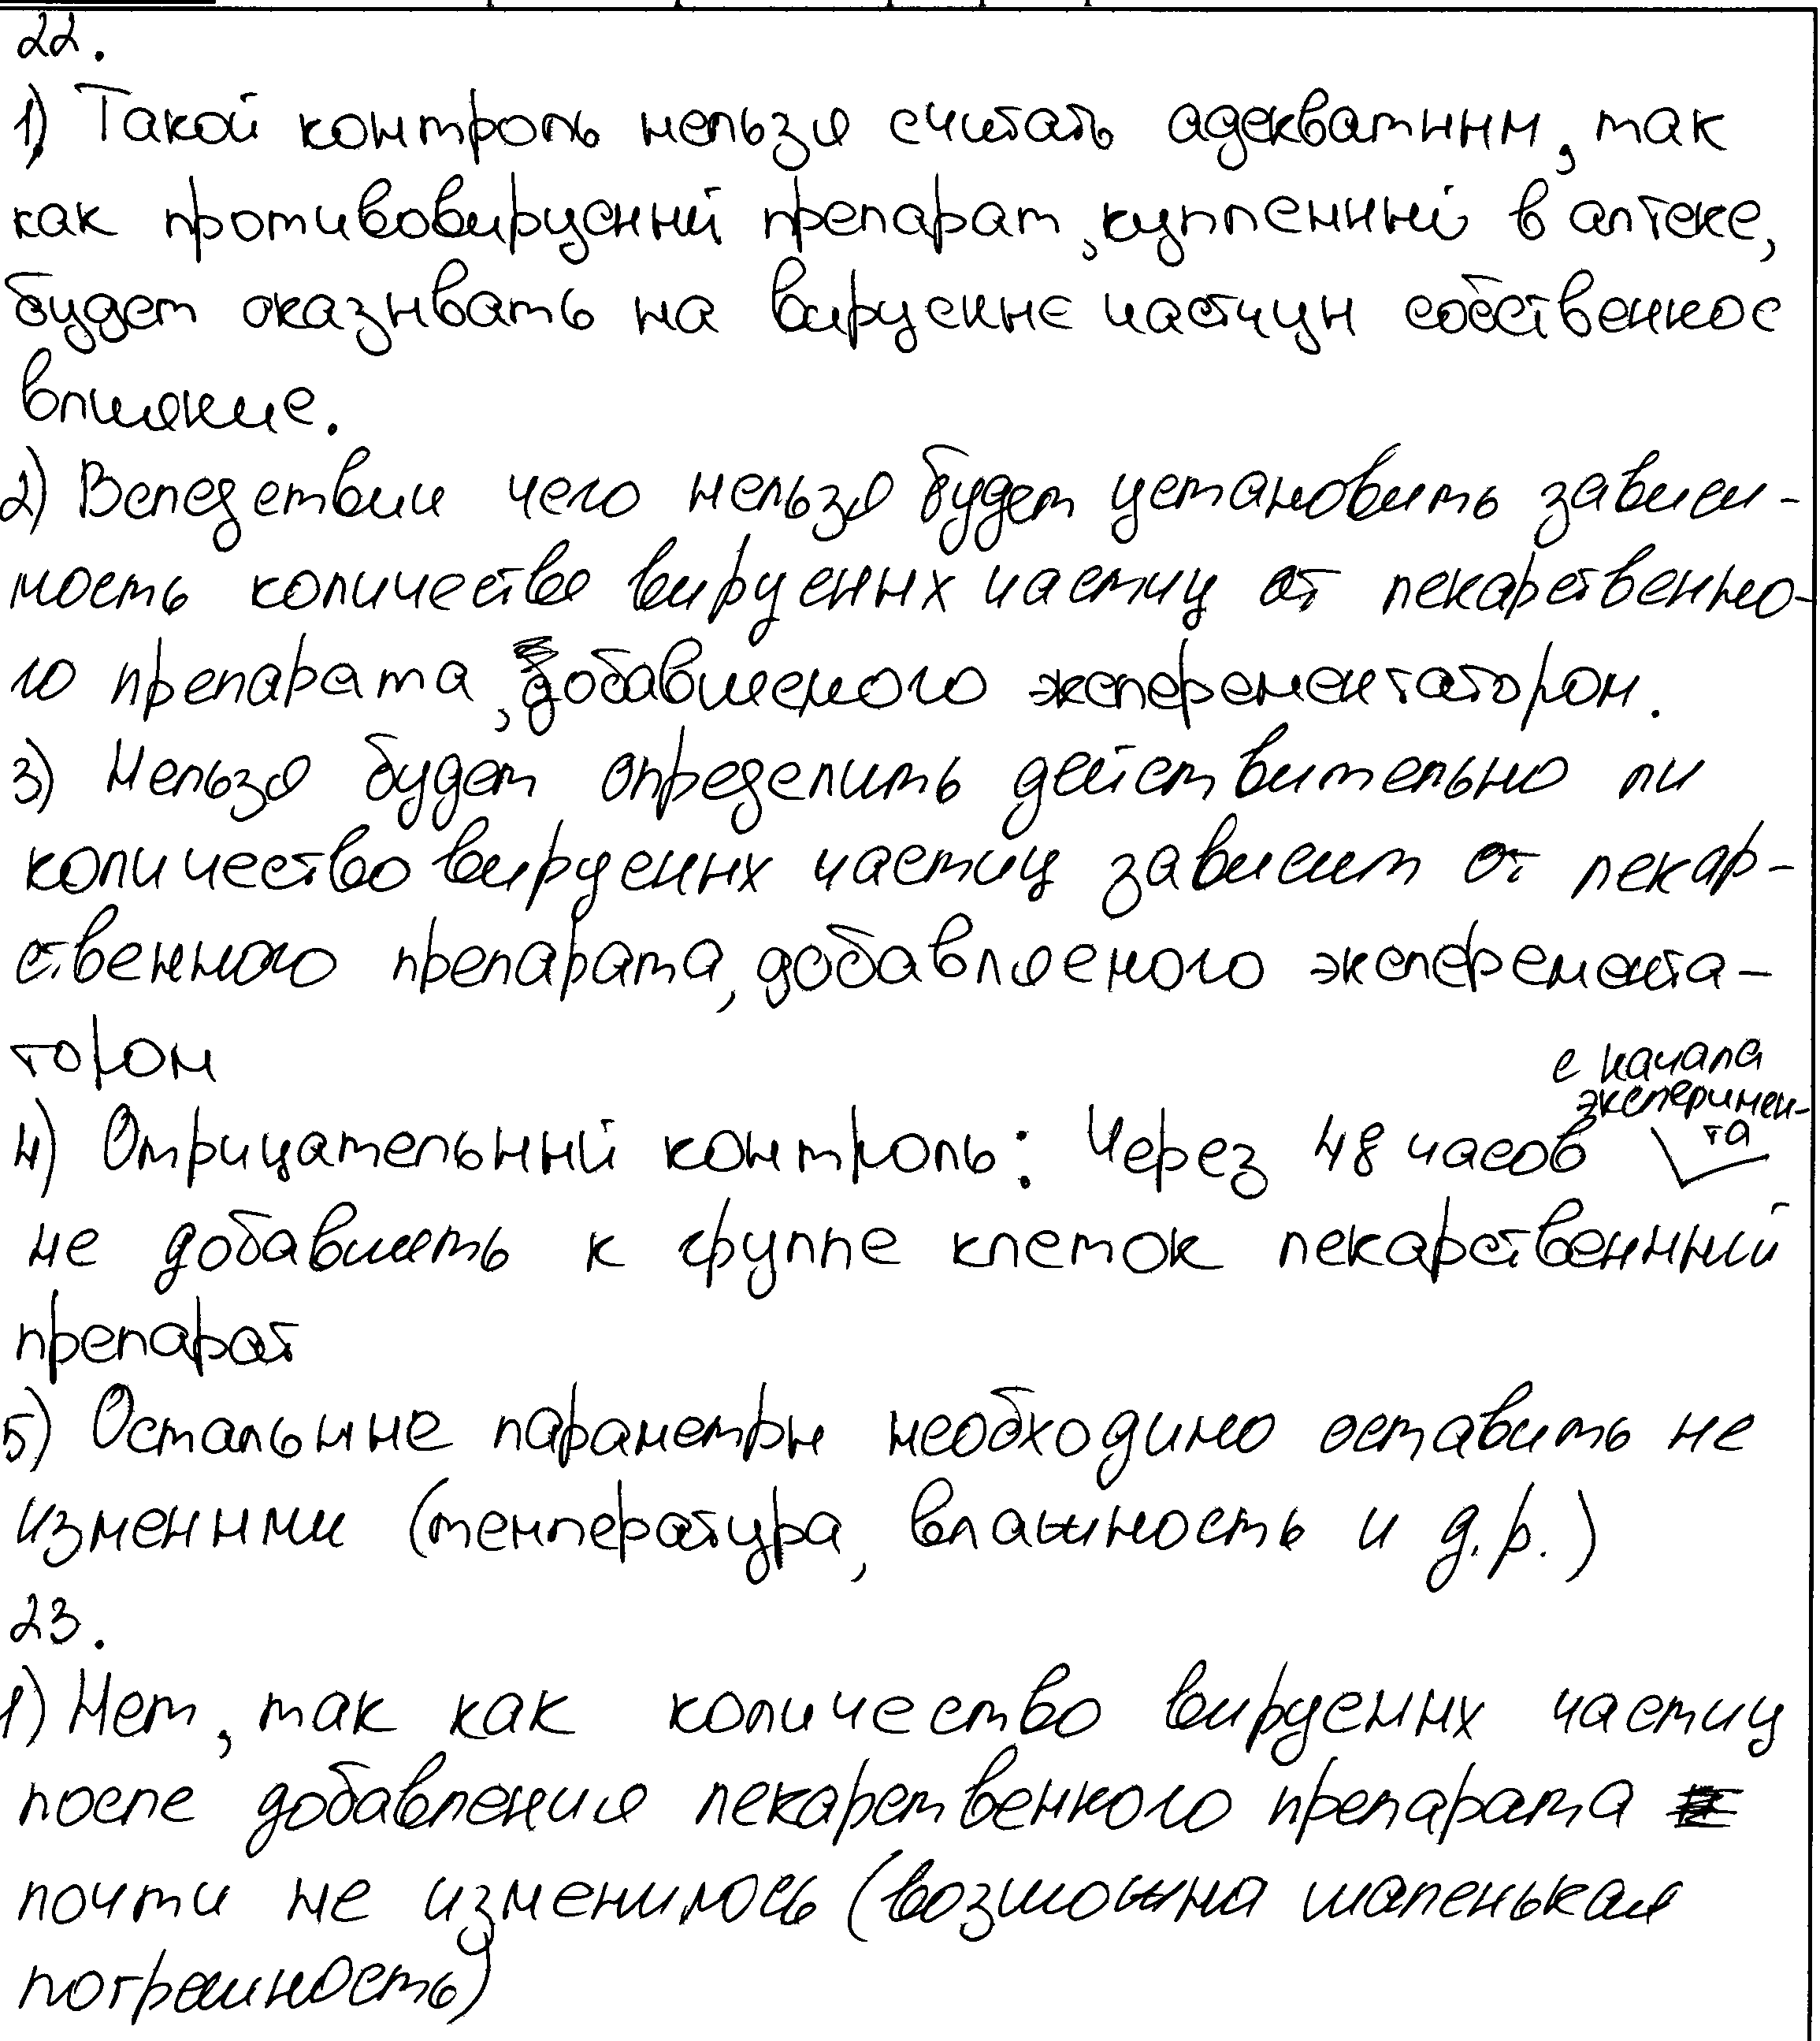 22.
1) Такой контроль нельзя считать адекватным, так
как противовирусный препарат, купленный в аптеке,
будет оказывать на вирусные частицы собственное
влияние.
2) Вследствии чего нельзя будет установить зависи-
мость количества вирусных частиц от лекарственно-
го препарата, добавляемого эксперементатором.
3) Нельзя будет определить действительно ли
количество вирусных частиц зависит от лекар-
ственного препарата, добавляемого эксперемента-
тором
4) Отрицательный контроль: Через 48 часов с начала эксперимен-та
не добавлять к группе клеток лекарственный
препарат
5) Остальные параметры необходимо оставить не
изменными (температура, влажность и д.р.)
23.
1) Нет, так как количество вирусных частиц
после добавления лекарственного препарата
почти не изменилось (возможна маленькая
погрешность)